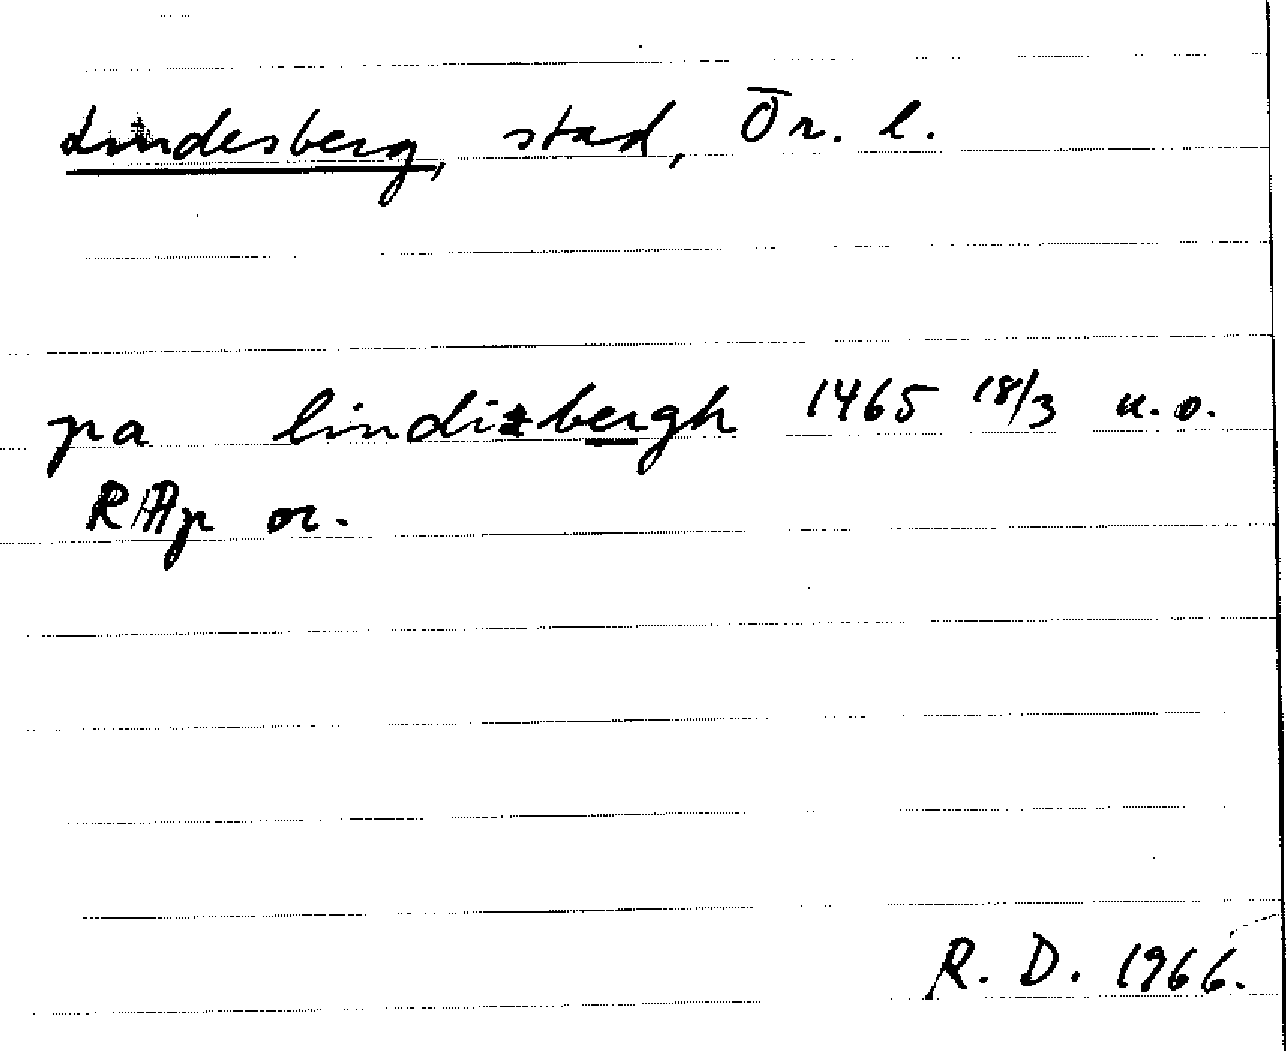 Lindesberg, stad, Ör. l.
pa lindizbergh 1465 18/3 u.o.
RAp or.
R. D. 1966.